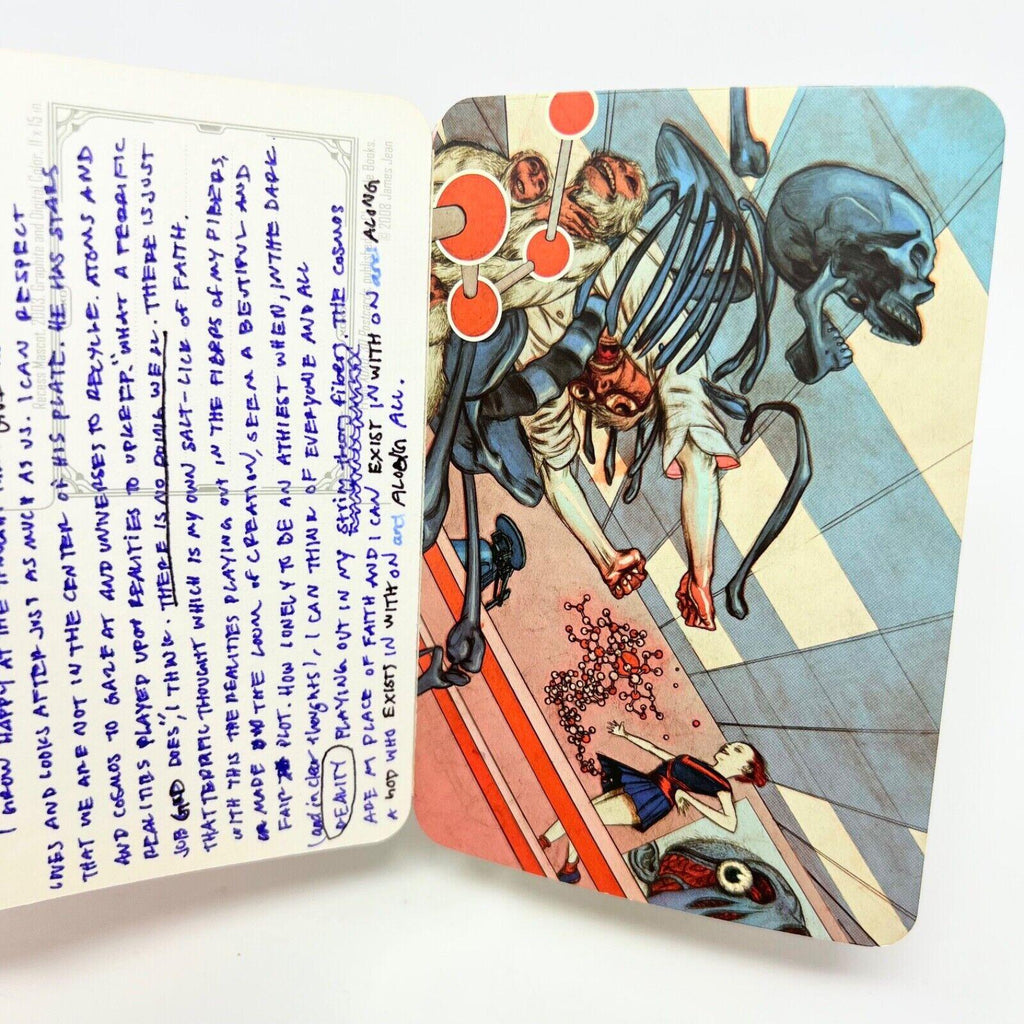 I GROW HAPPY AT THE THOUGHT THAT
LOVES AND LOOKS AFTER JUST AS MUCH AS US. I CAN RESPECT
THAT WE ARE NOT IN THE CENTER OF HIS PLATE. HE HAS STARS
AND COSMOS TO GAZE AT AND UNIVERSES TO RECYCLE. ATOMS AND
REALITIES PLAYED UPON REALITIES TO UPKEEP. "WHAT A TERRIFIC
JOB GOD DOES", I THINK. THERE IS NO DOING WELL. THERE IS JUST
THAT TERRIFIC THOUGHT WHICH IS MY OWN SALT-LICK OF FAITH.
WITH THIS THE REALITIES PLAYING OUT IN THE FIBERS OF MY FIBERS,
OR MADE THE LOOM OF CREATION, SEEM A BEUTIFUL AND
FAIR PLOT. HOW LONELY TO BE AN ATHIEST WHEN, IN THE DARK.
(and in clear thoughts), I CAN THINK OF EVERYONE AND ALL
REALITY PLAYING OUT IN MY string theory fibers. THE COSMOS
ARE M PLACE OF FAITH AND I CAN EXIST IN WITH ON and ALONG
A WHO EXISTS IN WITH ON and ALONG ALL.
Recess Mascot, 2003. Graphite and Digital Color. 11 x 15 in
Books.
© 2008 James Jean